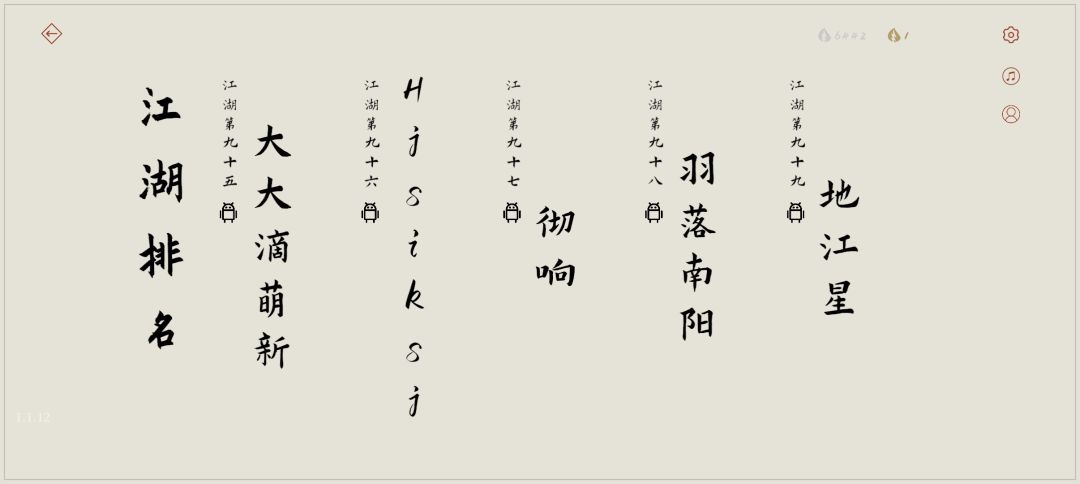 6442
1
江湖排名
江湖第九十五
大大滴萌新
江湖第九十六
Hjsiksj
江湖第九十七
彻响
江湖第九十八
羽落南阳
江湖第九十九
地江星
1.1.12